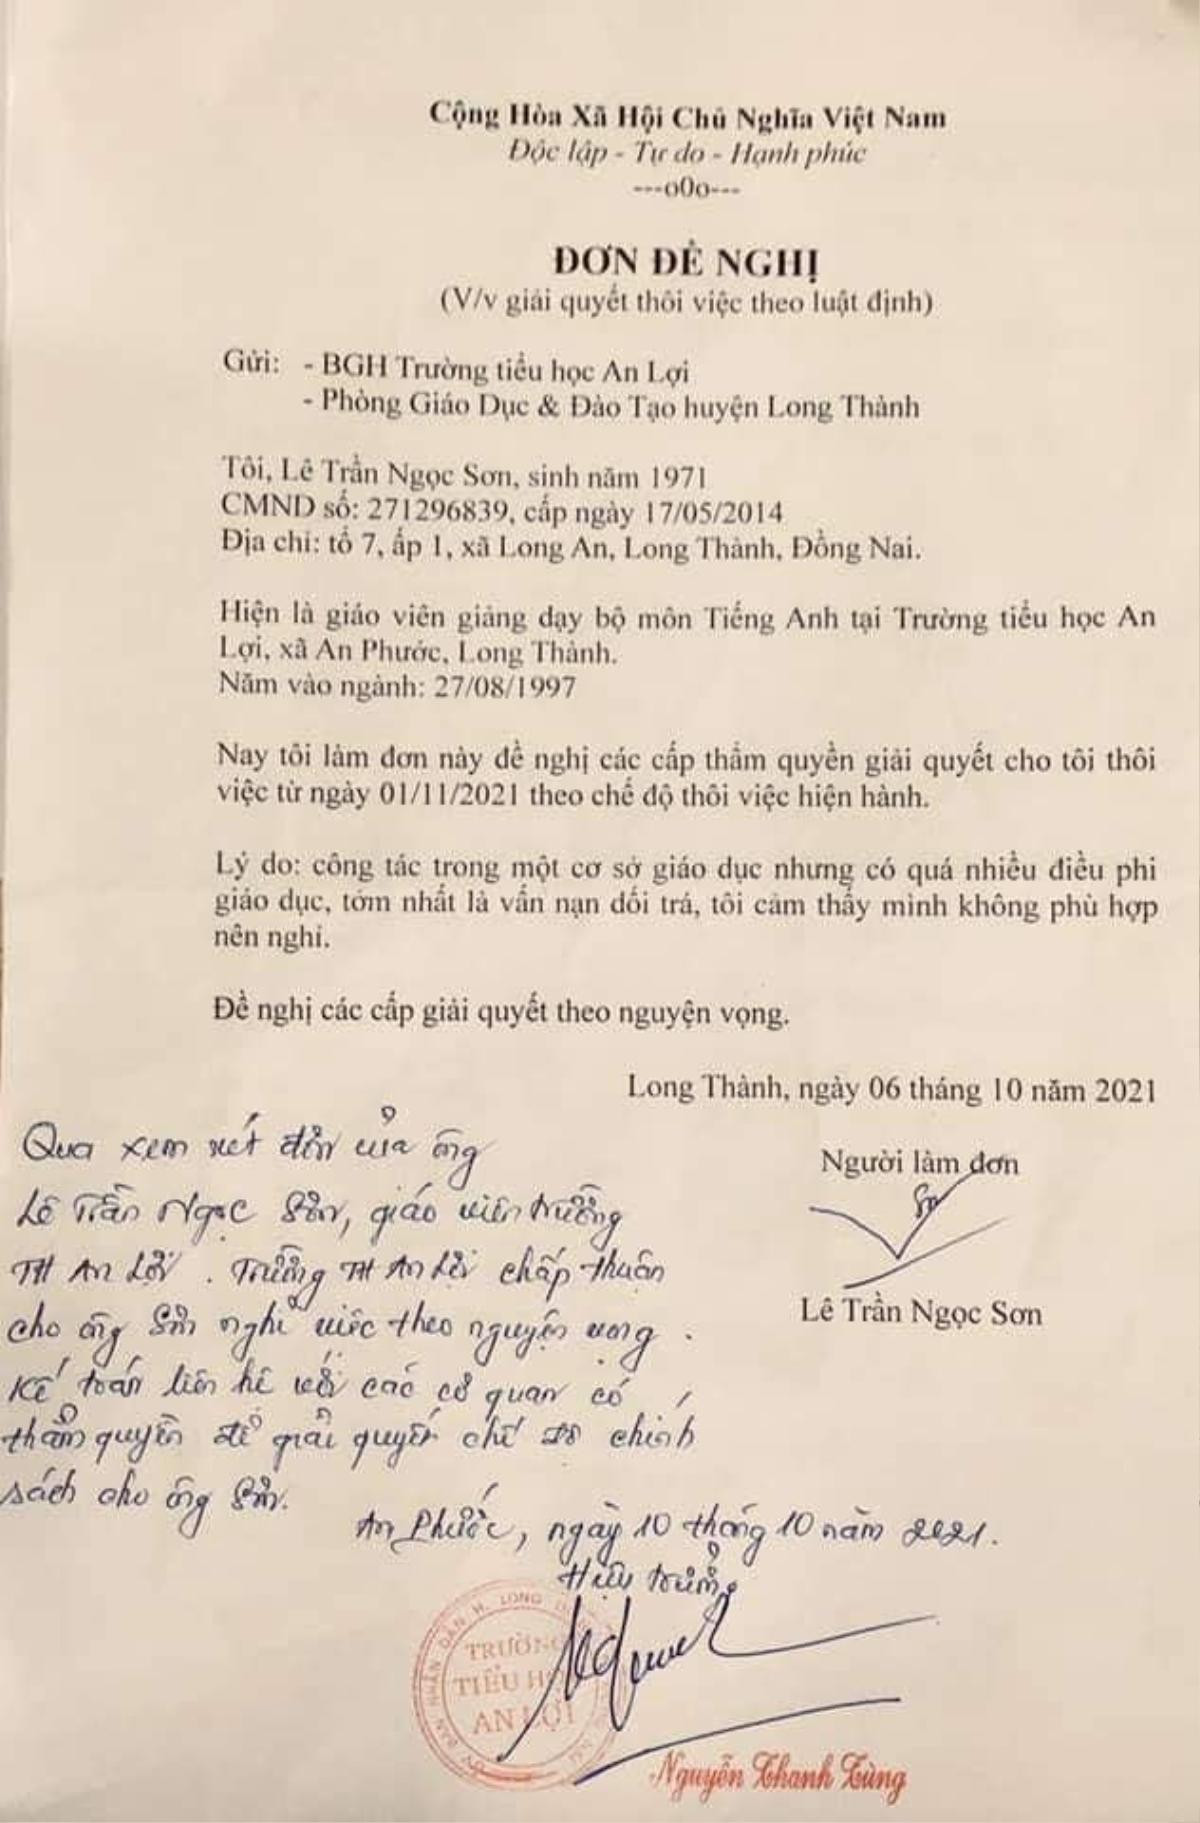 Cộng Hòa Xã Hội Chủ Nghĩa Việt Nam
Độc lập - Tự do - Hạnh phúc
---o0o---
ĐƠN ĐỀ NGHỊ
(V/v giải quyết thôi việc theo luật định)
Gửi: - BGH Trường tiểu học An Lợi
- Phòng Giáo Dục & Đào Tạo huyện Long Thành
Tôi, Lê Trần Ngọc Sơn, sinh năm 1971
CMND số: 271296839, cấp ngày 17/05/2014
Địa chỉ: tổ 7, ấp 1, xã Long An, Long Thành, Đồng Nai.
Hiện là giáo viên giảng dạy bộ môn Tiếng Anh tại Trường tiểu học An
Lợi, xã An Phước, Long Thành.
Năm vào ngành: 27/08/1997
Nay tôi làm đơn này đề nghị các cấp thẩm quyền giải quyết cho tôi thôi
việc từ ngày 01/11/2021 theo chế độ thôi việc hiện hành.
Lý do: công tác trong một cơ sở giáo dục nhưng có quá nhiều điều phi
giáo dục, tởm nhất là vấn nạn dối trá, tôi cảm thấy mình không phù hợp
nên nghỉ.
Đề nghị các cấp giải quyết theo nguyện vọng.
Long Thành, ngày 06 tháng 10 năm 2021
Người làm đơn
Sơn
Lê Trần Ngọc Sơn
Qua xem xét đơn của ông
Lê Trần Ngọc Sơn, giáo viên trường
TH An Lợi. Trường TH An Lợi chấp thuận
cho ông Sơn nghỉ việc theo nguyện vọng.
Kế toán liên hệ với các cơ quan có
thẩm quyền để giải quyết chế độ chính
sách cho ông Sơn.
An Phước, ngày 10 tháng 10 năm 2021.
Hiệu trưởng
ỦY BAN NHÂN DÂN H. LONG
TRƯỜNG
TIỂU HỌC
AN LỢI
Nguyễn Thanh Tùng